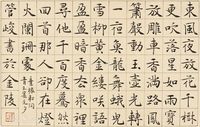 東風夜放花千樹
更吹落星如雨寶
馬雕車香滿路鳳
簫聲動玉壺光轉
一夜魚龍舞蛾兒
雪柳黃金縷笑語
盈盈暗香去眾裏
尋他千百度驀然
回首那人卻在燈
火闌珊處
管峻書於金陵